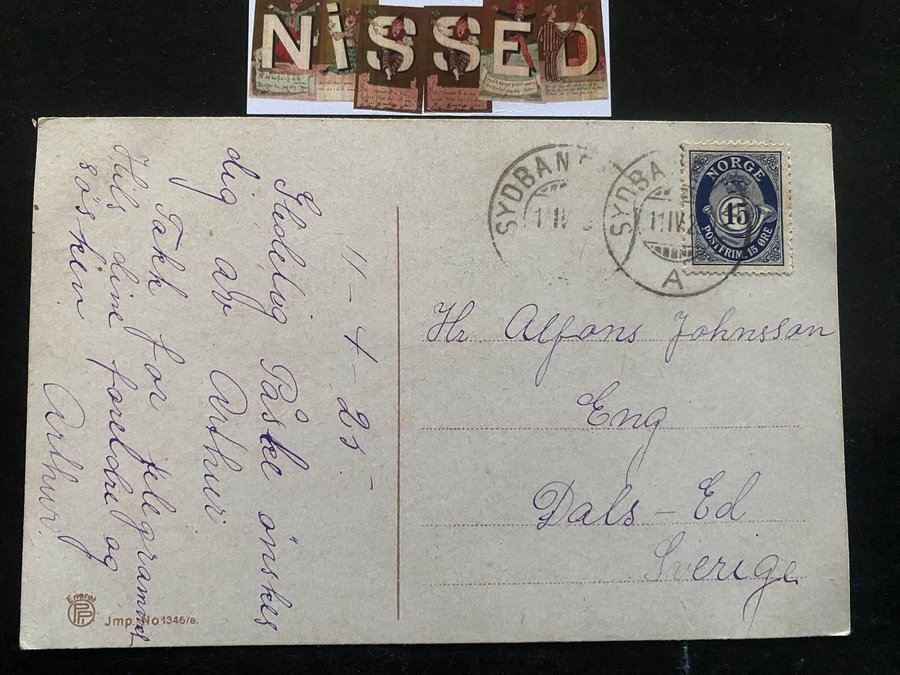 NISSED
11-4-25
Gledelig Påske önskes
dig av Arthur.
Takk for telegrammet
Hils dine foreldre og
sösken Arthur.
SYDBAN
11 IV
SYDBA
11 IV 2
A
NORGE
15
POSTFRIM. 15 ØRE
Hr. Alfons Johnsson
Eng
Dals-Ed
Sverige
Eneret
Jmp. No 1346/8.